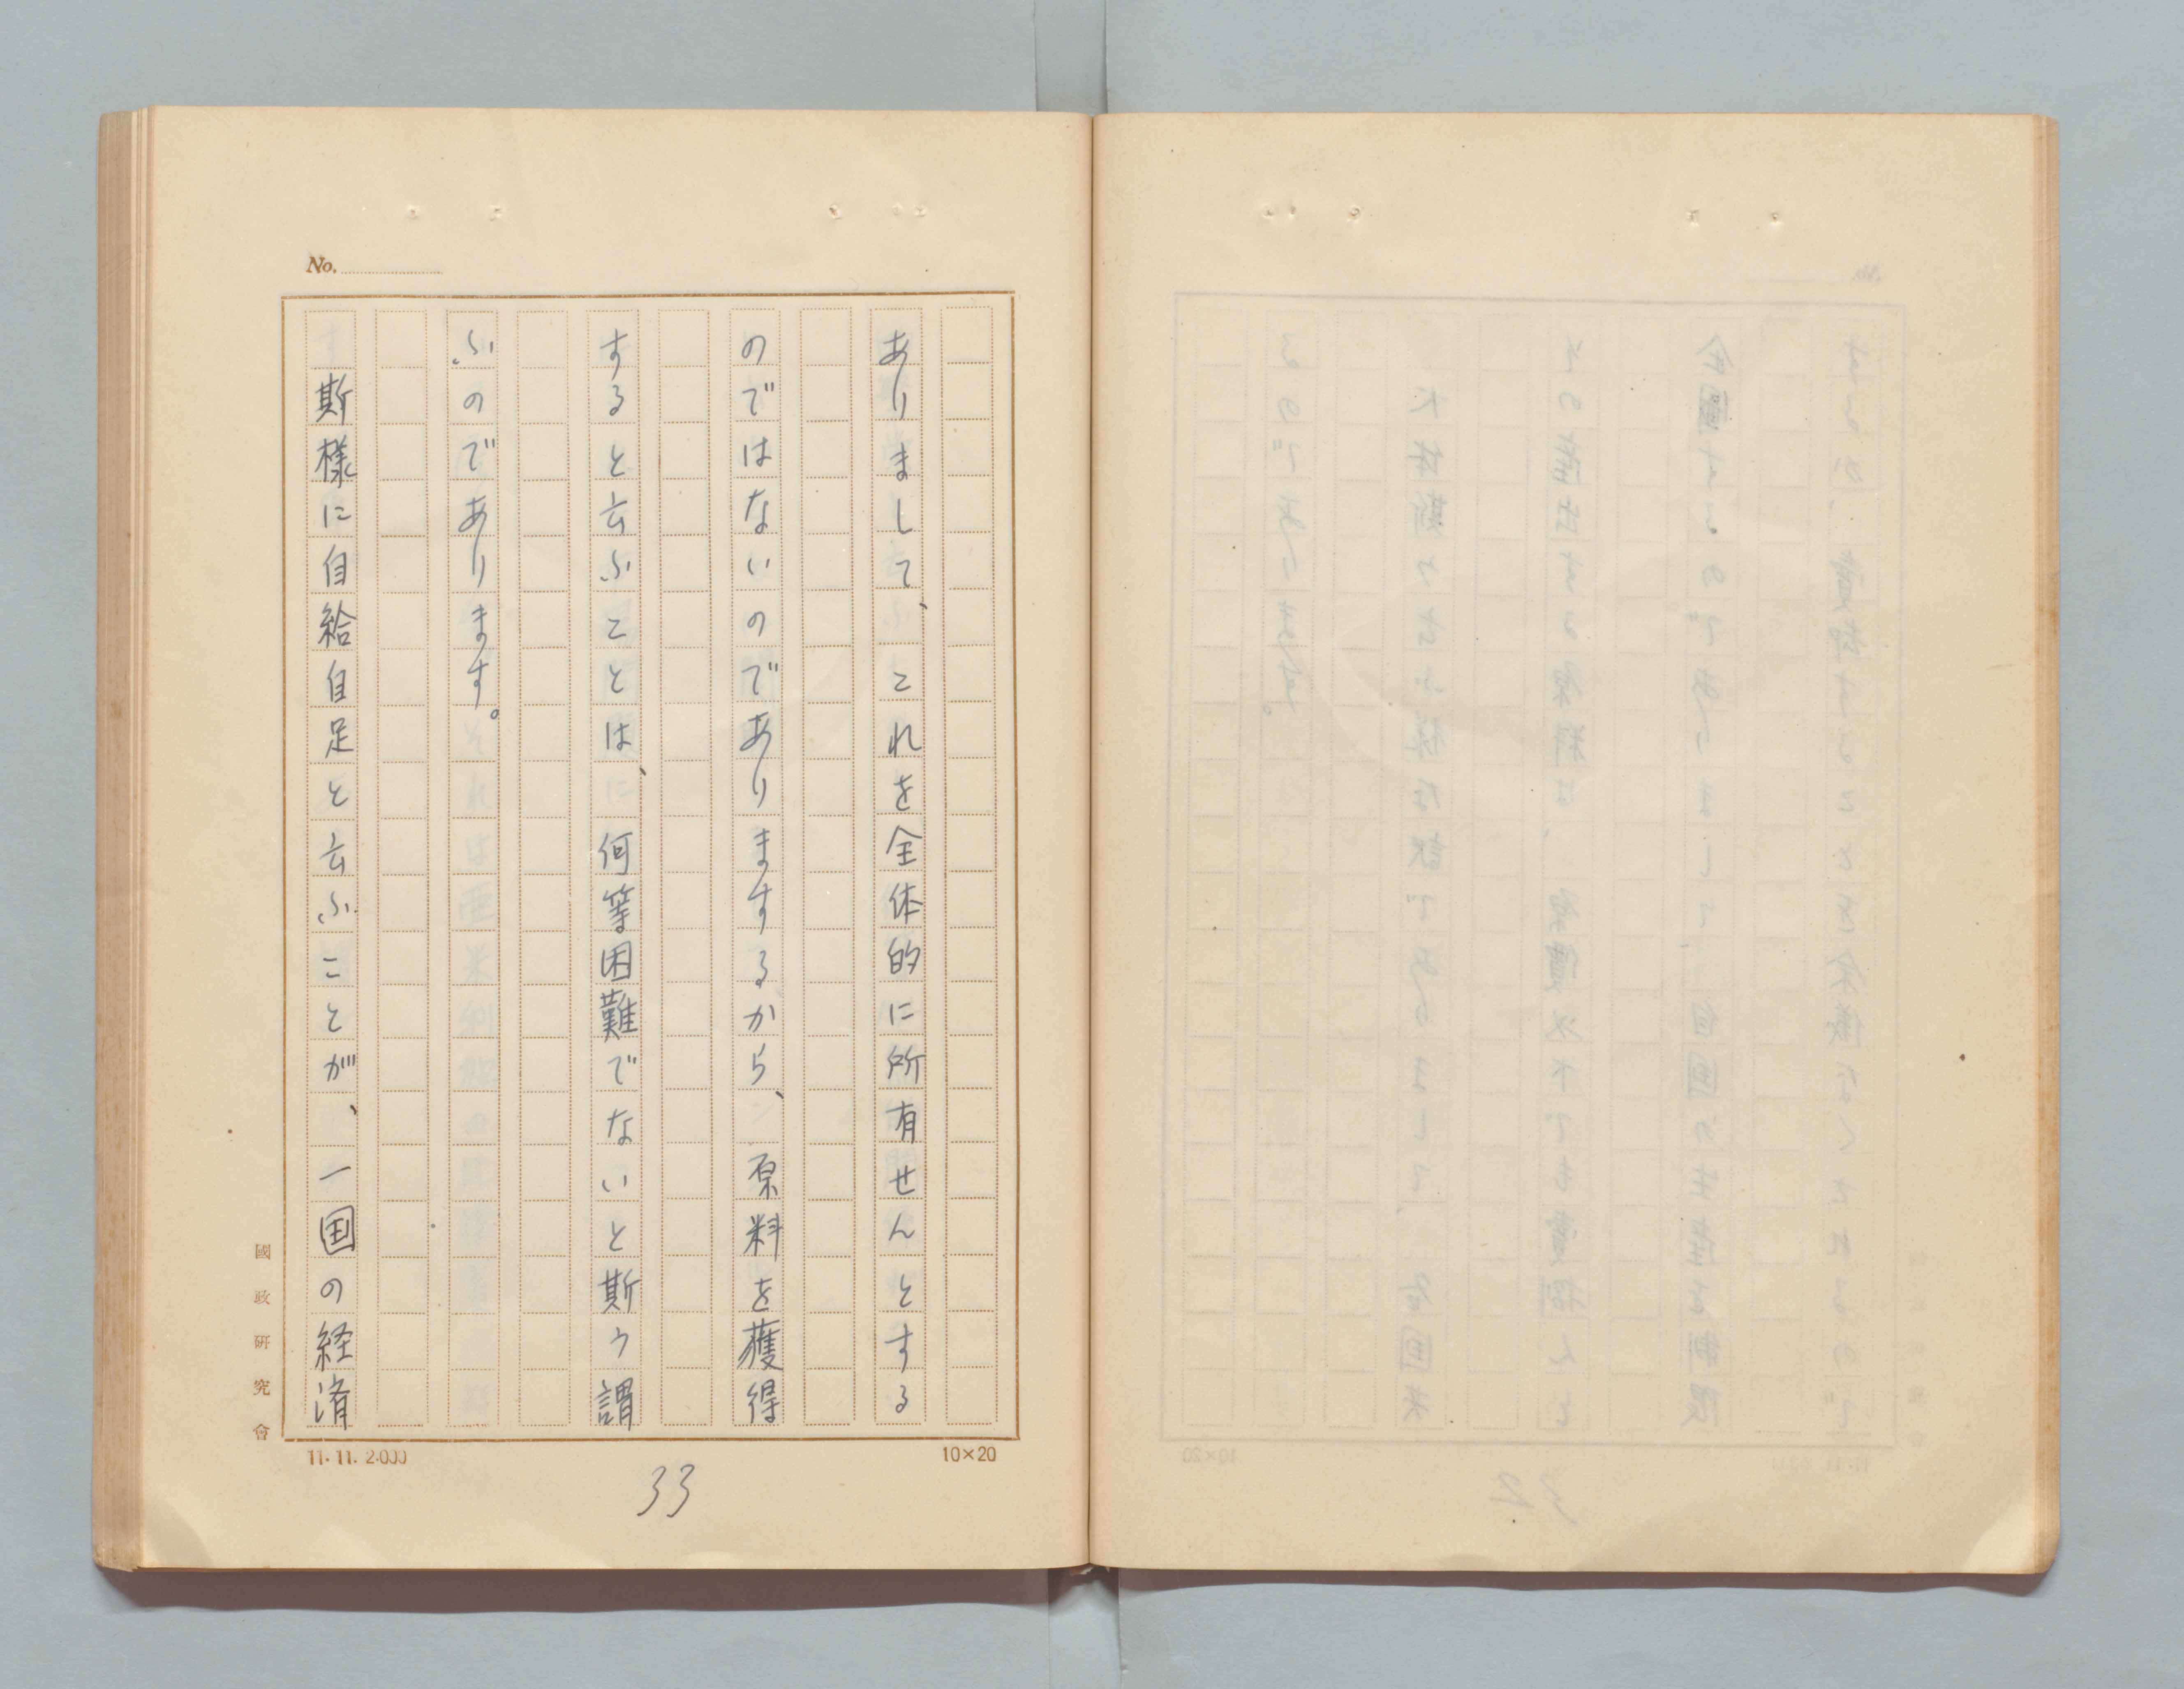 No.
ありまして、これを全体的に所有せんとする
のではないのでありまするから、原料を獲得
すると云ふことは、何等困難でないと斯う謂
ふのであります。
斯様に自給自足と云ふことが、一国の経済
國政研究會
11.11.2.000
10×20
33